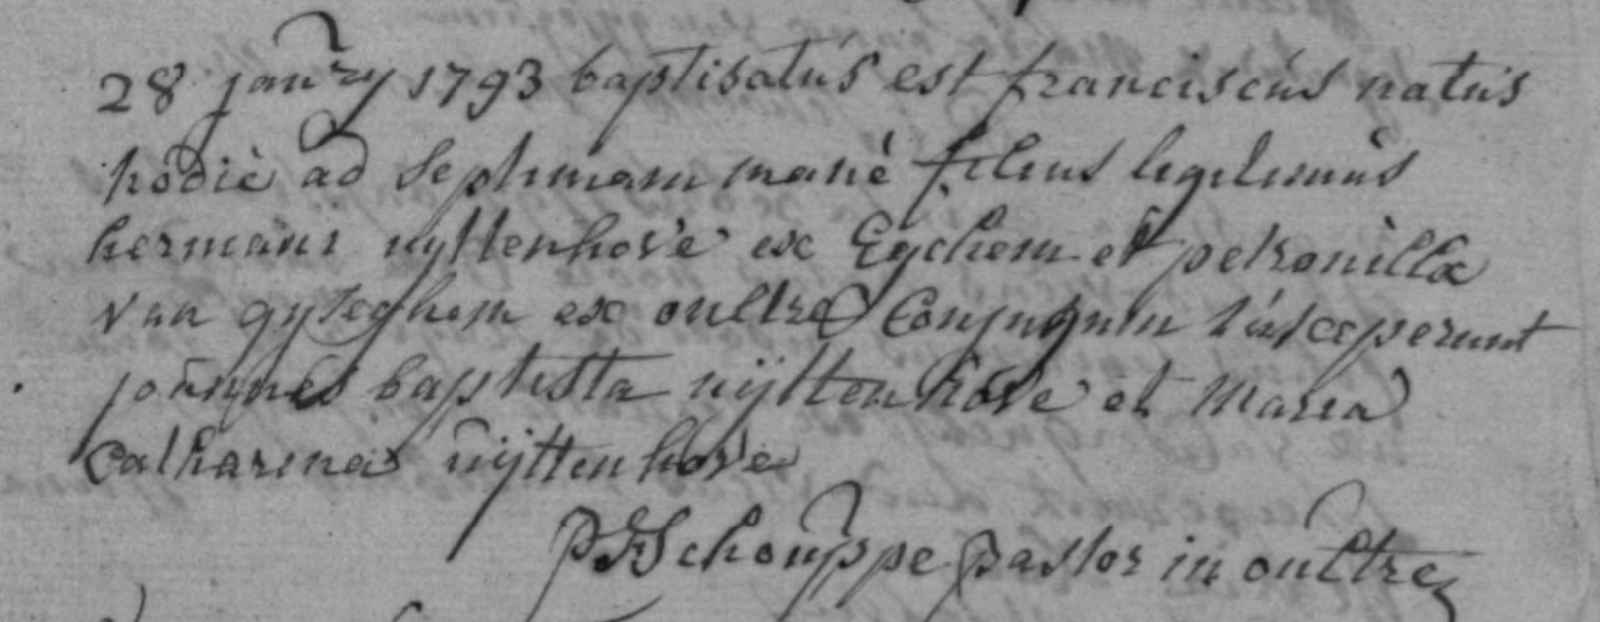 28 janry 1793 baptisatus est franciscus natus
hodiè ad septimam manè filius legitimus
hermani uÿttenhove ex Eychem et petronilla
van gyseghem ex oultre Conjugum susceperunt
joannes baptista uÿttenhove et Maria
Catharina uÿttenhove
Schouppe pastor in oultre